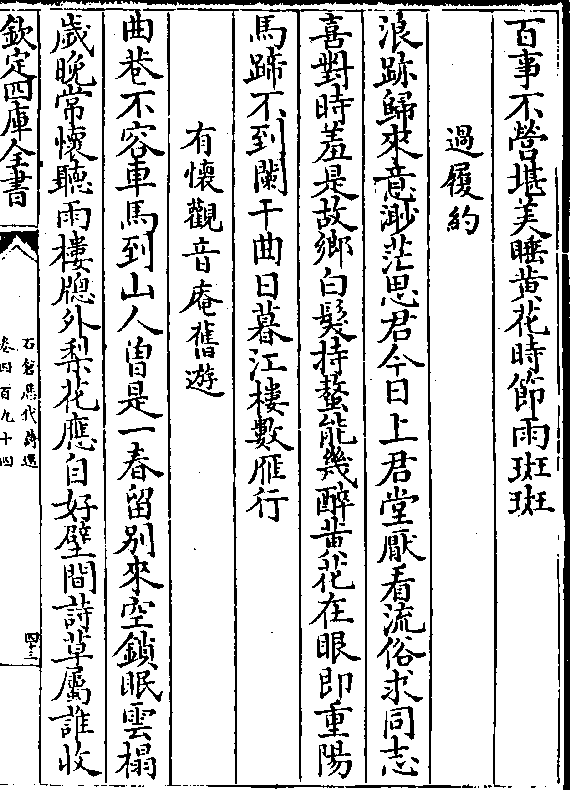 百事不營堪美睡黄花時節雨斑斑
過履約
浪跡歸來意渺茫思君今日上君堂厭看流俗求同志
喜對時羞是故鄉白髮持螯能幾醉黄花在眼即重陽
馬蹄不到闌干曲日暮江樓數雁行
有懷觀音庵舊遊
曲巷不容車馬到山人曽是一春留别來空鎖眠雲榻
歲晩常懷聽雨樓牕外梨花應自好壁間詩草屬誰收
欽定四庫全書
石倉歴代詩選
卷四百九十四
四十三